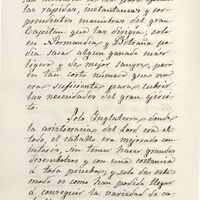 las rápidas, instantaneas y sor-
prendentes maniobras del gran
Capitan que las dirigia; solo
en Normandia y Bretaña po-
dia sacar algun ganado mas
ligero y de mejor sangre, pero
en tan corto número que no
era suficiente para cubrir
las necesidades del gran ejér-
cito.
Solo Inglaterra, donde
la aristocracia del Lord era el
todo, el caballo era mejorado con
interés, sin temer hacer grandes
desembolsos y con una constancia
á toda prueba; y solo de este
modo es como han podido llegar
á conseguir la variedad de ca-